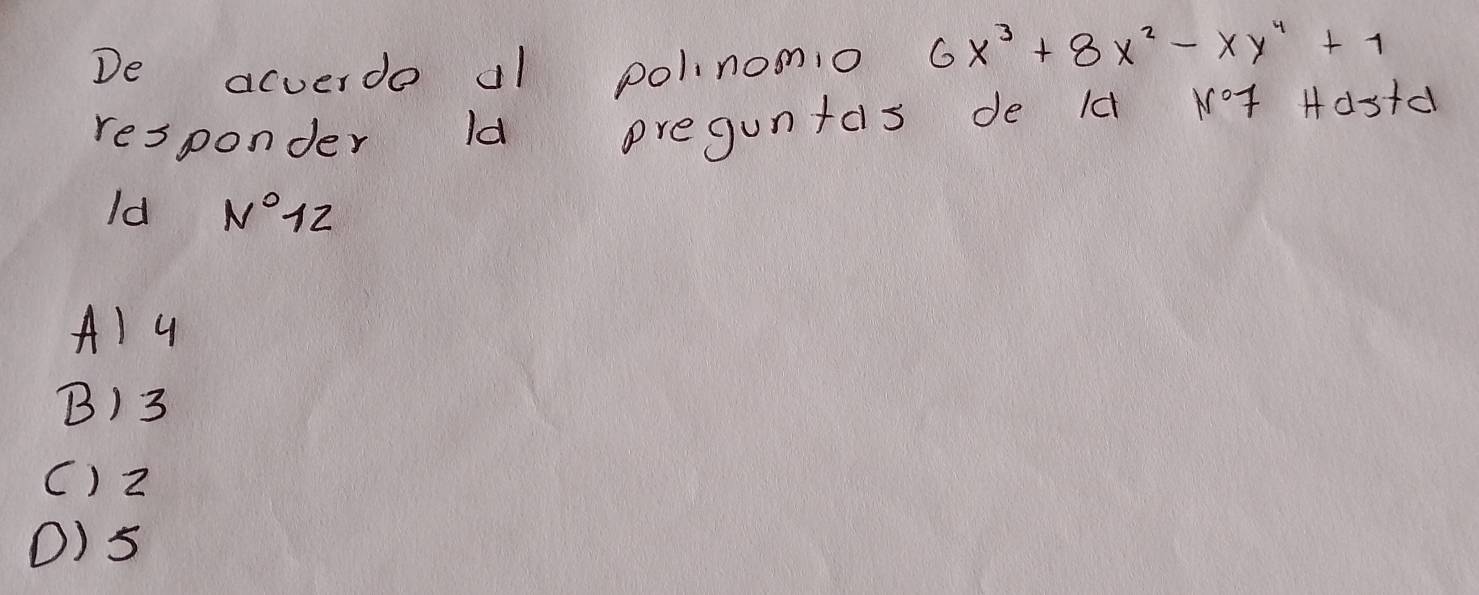 De acuerdo al polinomio 6x³ + 8x² - xy⁴ + 1
responder la preguntas de la N°7 Hasta
la N°12
A) 4
B) 3
C) 2
D) 5